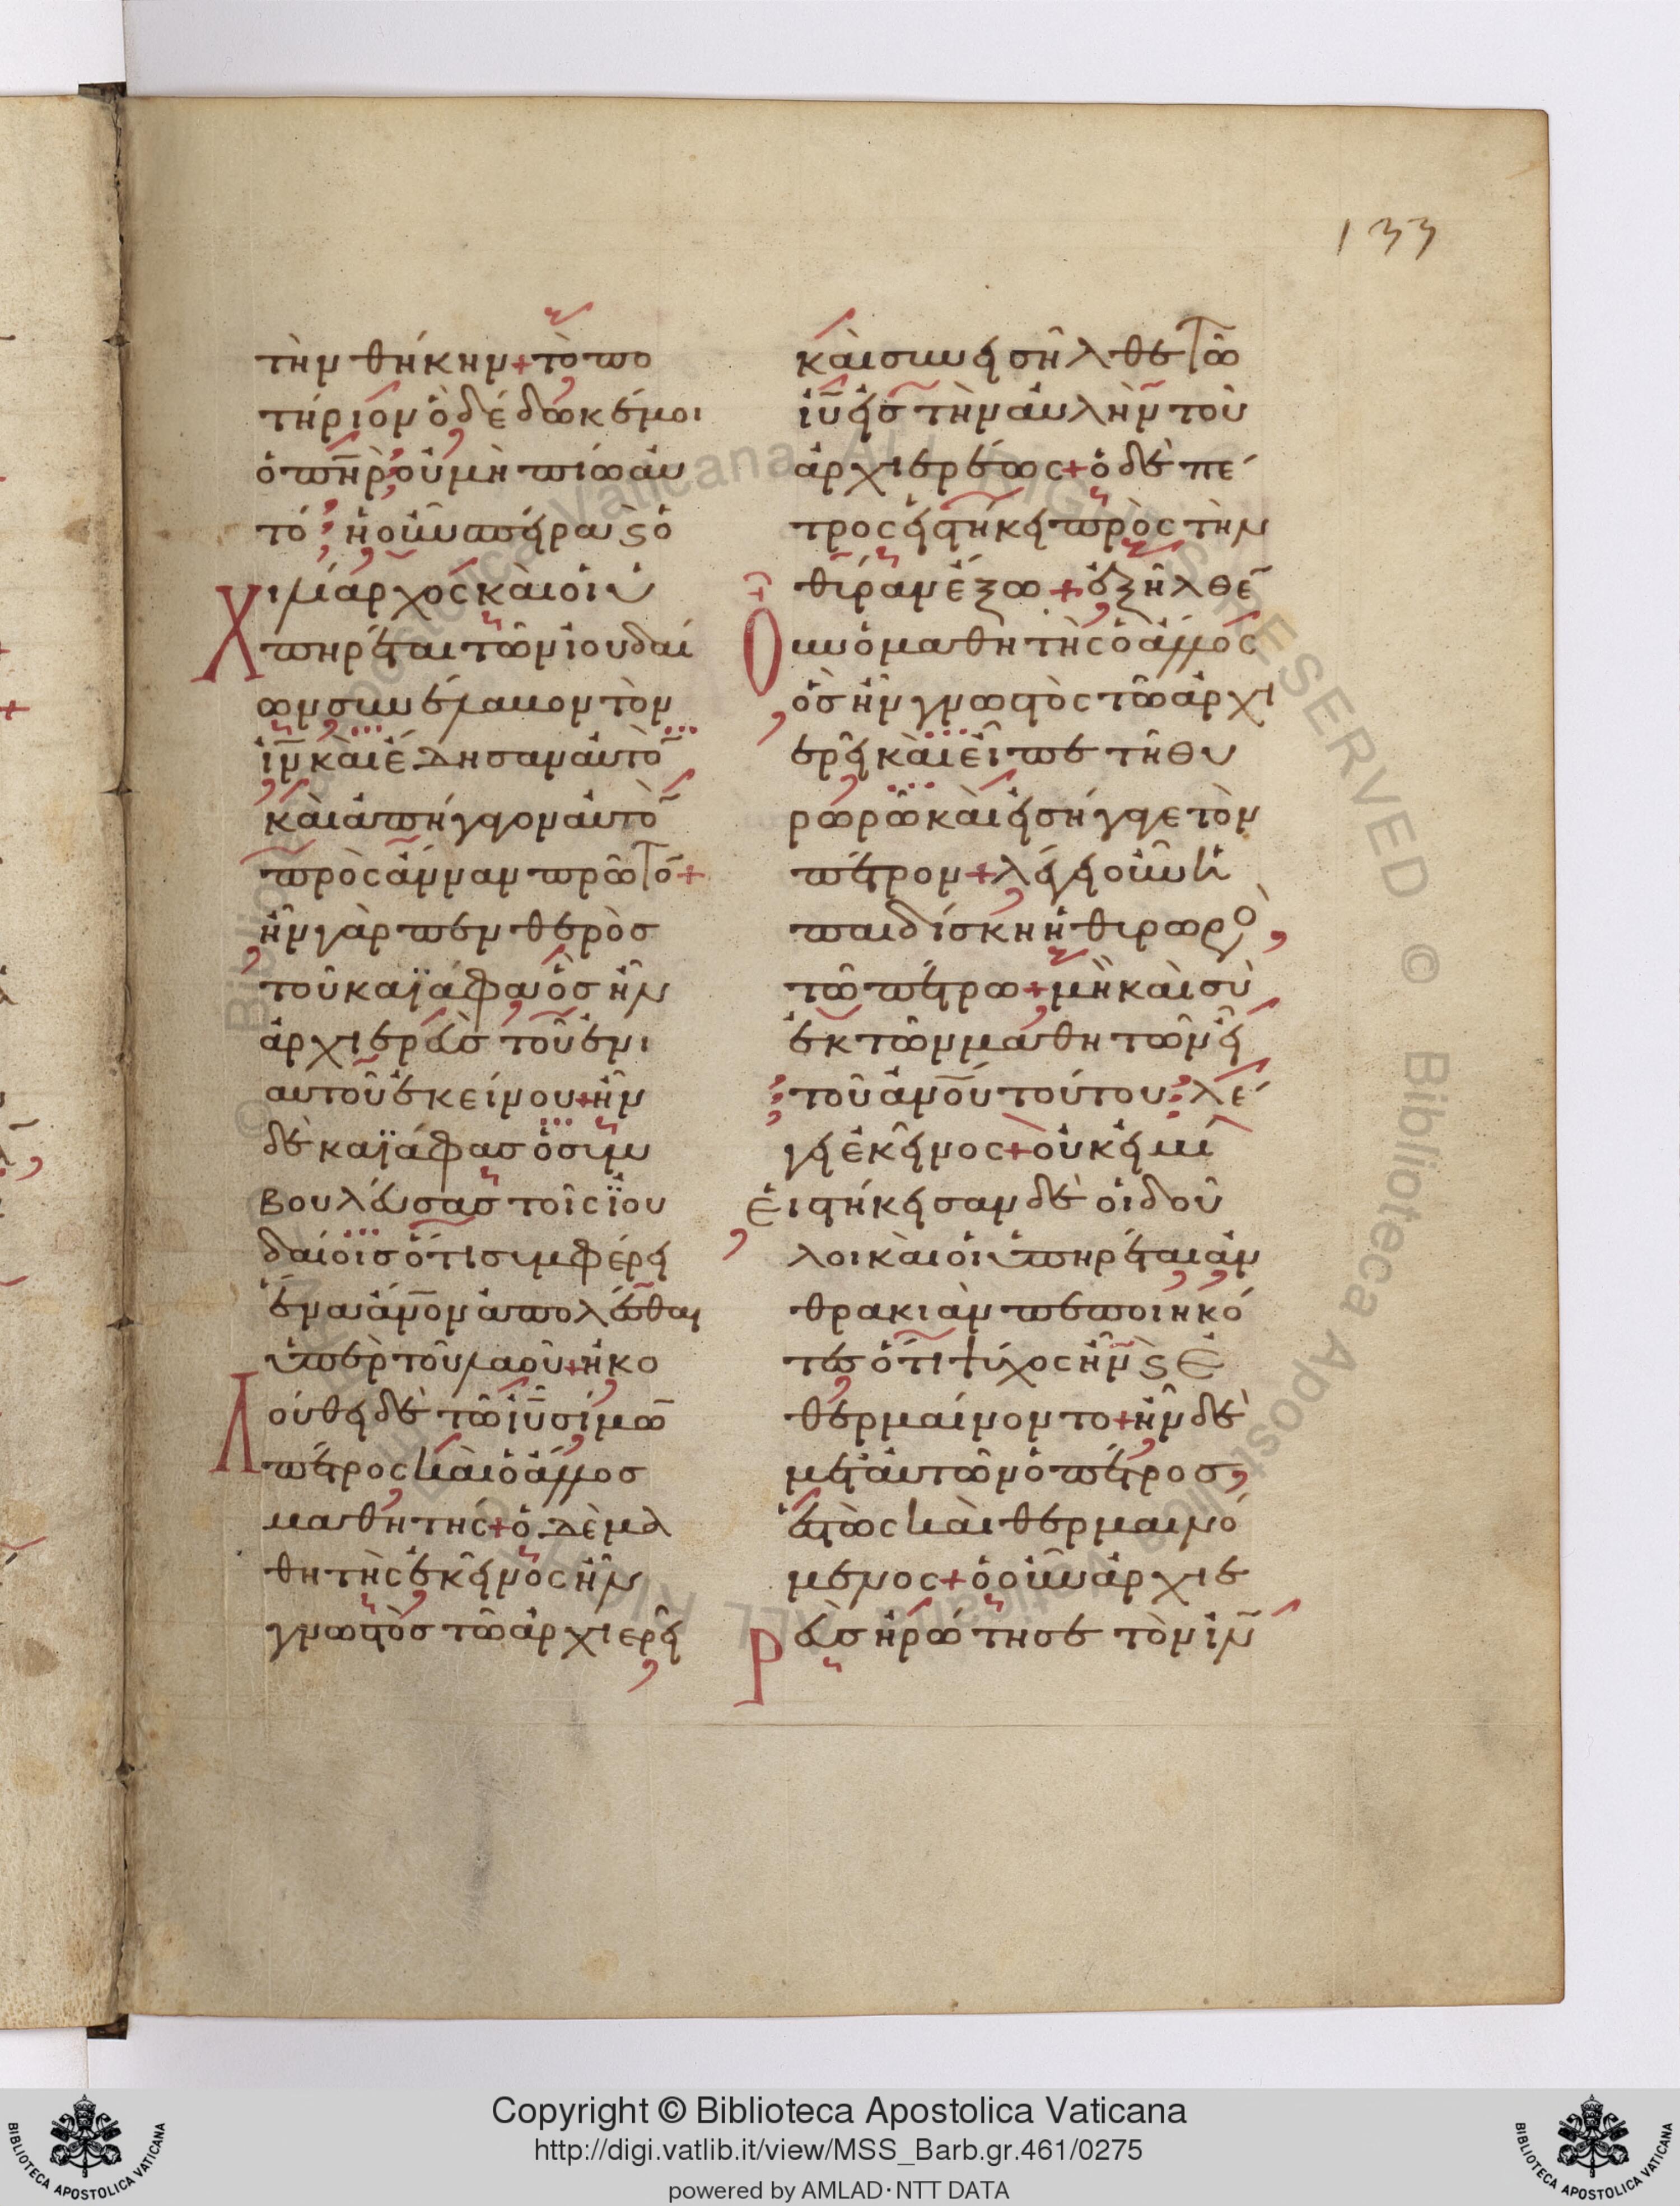 133
τὴν θήκην + τὸ πο
τήριον ὃ δέδωκέ μοι
ὁ πη̅ρ οὐ μὴ πίω αὐ
τό ἡ οὖν σπεῖρα ϛ ὁ
Χιλίαρχος καὶ οἱ ὑ
πηρέται τῶν ἰουδαί
ων συνέλαβον τὸν
ἰν̅ καὶ ἔδησαν αὐτὸ̅
καὶ ἀπήγαγον αὐτὸ̅
πρὸς ἄνναν πρῶτο̅ +
ἦν γὰρ πενθερὸσ
τοῦ καϊάφα ὃσ ἦν
ἀρχιερεὺσ τοῦ ἐνι
αυτοῦ ἐκείνου + ἦν
δὲ καϊάφασ ὁ συμ
βουλεύσασ τοῖς ἰου
δαίοισ ὅτι συμφέρει
ἕνα ἄν̅ον ἀπολέσθαι
ὑπὲρ τοῦ λαοῦ + ἠκο
Λούθει δὲ τῶ ἰυ̅ σίμω̅
πέτρος καὶ ὁ ἄλλοσ
μαθητής + ὁ δὲ μα
θητὴς ἐκεῖνος ἦν
γνωστὸσ τῶ ἀρχιερεῖ
καὶ συνεισῆλθε τῶ
ἰυ̅ εἰσ τὴν αὐλὴν τοῦ
ἀρχιερέως + ὁ δὲ πέ
τρος εἱστήκει πρὸς τὴν
θύραν ἔξω + ἐξῆλθε̅
Οὖν ὁ μαθητὴς ὁ ἄλλος
ὃσ ἦν γνωστὸς τῶ ἀρχι
ερεῖ καὶ εἶπε τῆ θυ
ρωρῶ καὶ εἰσήγαγε τὸν
πέτρον + λέγει οὖν ἡ
παιδίσκη ἡ θυρωρὸ
τῶ πέτρω + μὴ καὶ σὺ
ἐκ τῶν μαθητῶν εἶ
τοῦ ἀν̅ου τούτου λέ
γει ἐκεῖνος + οὐκ εἰμὶ
Εἱστήκεισαν δὲ οἱ δοῦ
λοι καὶ οἱ ὑπηρέται ἀν
θρακιὰν πεποιηκό
τεσ ὅτι ψύχος ἦν ϛ ἐ
θερμαίνοντο + ἦν δὲ
μετ' αὐτῶν ὁ πέτροσ
ἑστὼς καὶ θερμαινό
μενος + ὁ οὖν ἀρχιε
Ρεὺσ ἠρώτησε τὸν ἰν̅
Copyright © Biblioteca Apostolica Vaticana
http://digi.vatlib.it/view/MSS_Barb.gr.461/0275
powered by AMLAD·NTT DATA
BIBLIOTECA APOSTOLICA VATICANA
BIBLIOTECA APOSTOLICA VATICANA